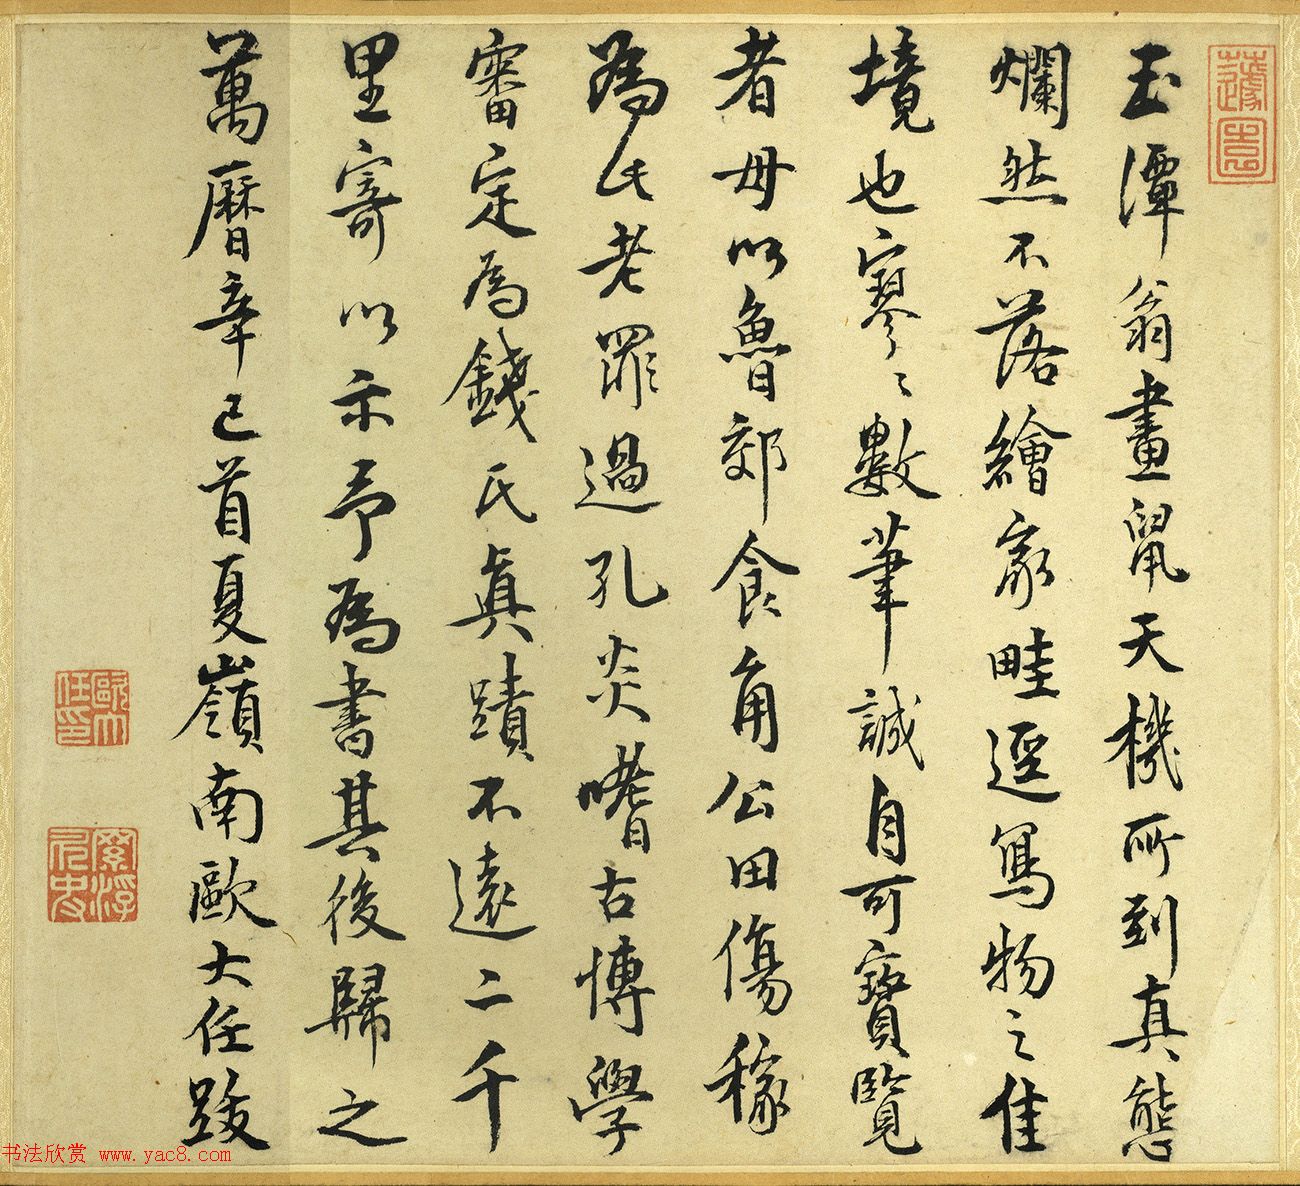 玉潭翁畫鼠天機所到真態
爛然不落繪家畦逕寫物之佳
境也寥々數筆誠自可寶覽
者毋以魯郊食角公田傷稼
為氏老罪過孔炎嗜古博學
審定為錢氏真蹟不遠二千
里寄以示予為書其後歸之
萬曆辛巳首夏嶺南歐大任跋
歐大任印
书法欣赏 www.yac8.com